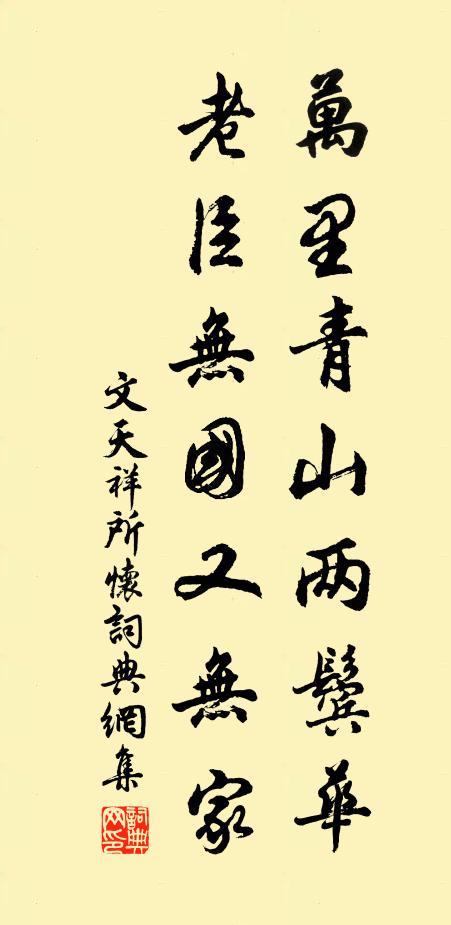 萬里青山两鬢華
老臣無國又無家
文天祥所懷詞典網集
詞典
网印